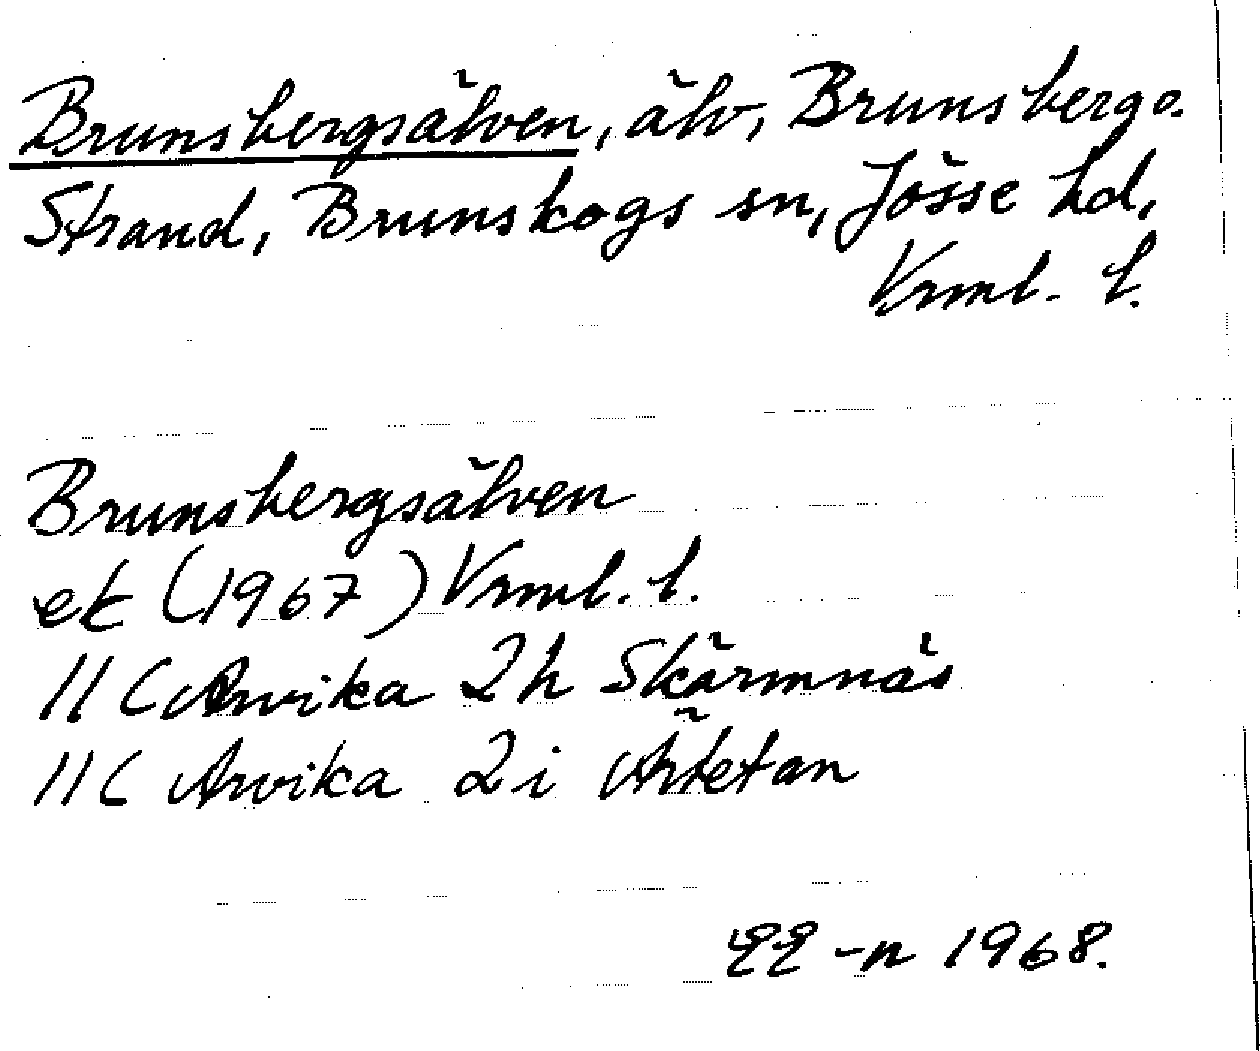 Brunsbergsälven, älv, Brunsbergs.
Strand, Brunskogs sn, Jösse hd,
Vrml. l.
Brunsbergsälven
ek (1967) Vrml. l.
11C Arvika 2h Skärmnäs
11C Arvika 2i Ärtetan
EE-n 1968.